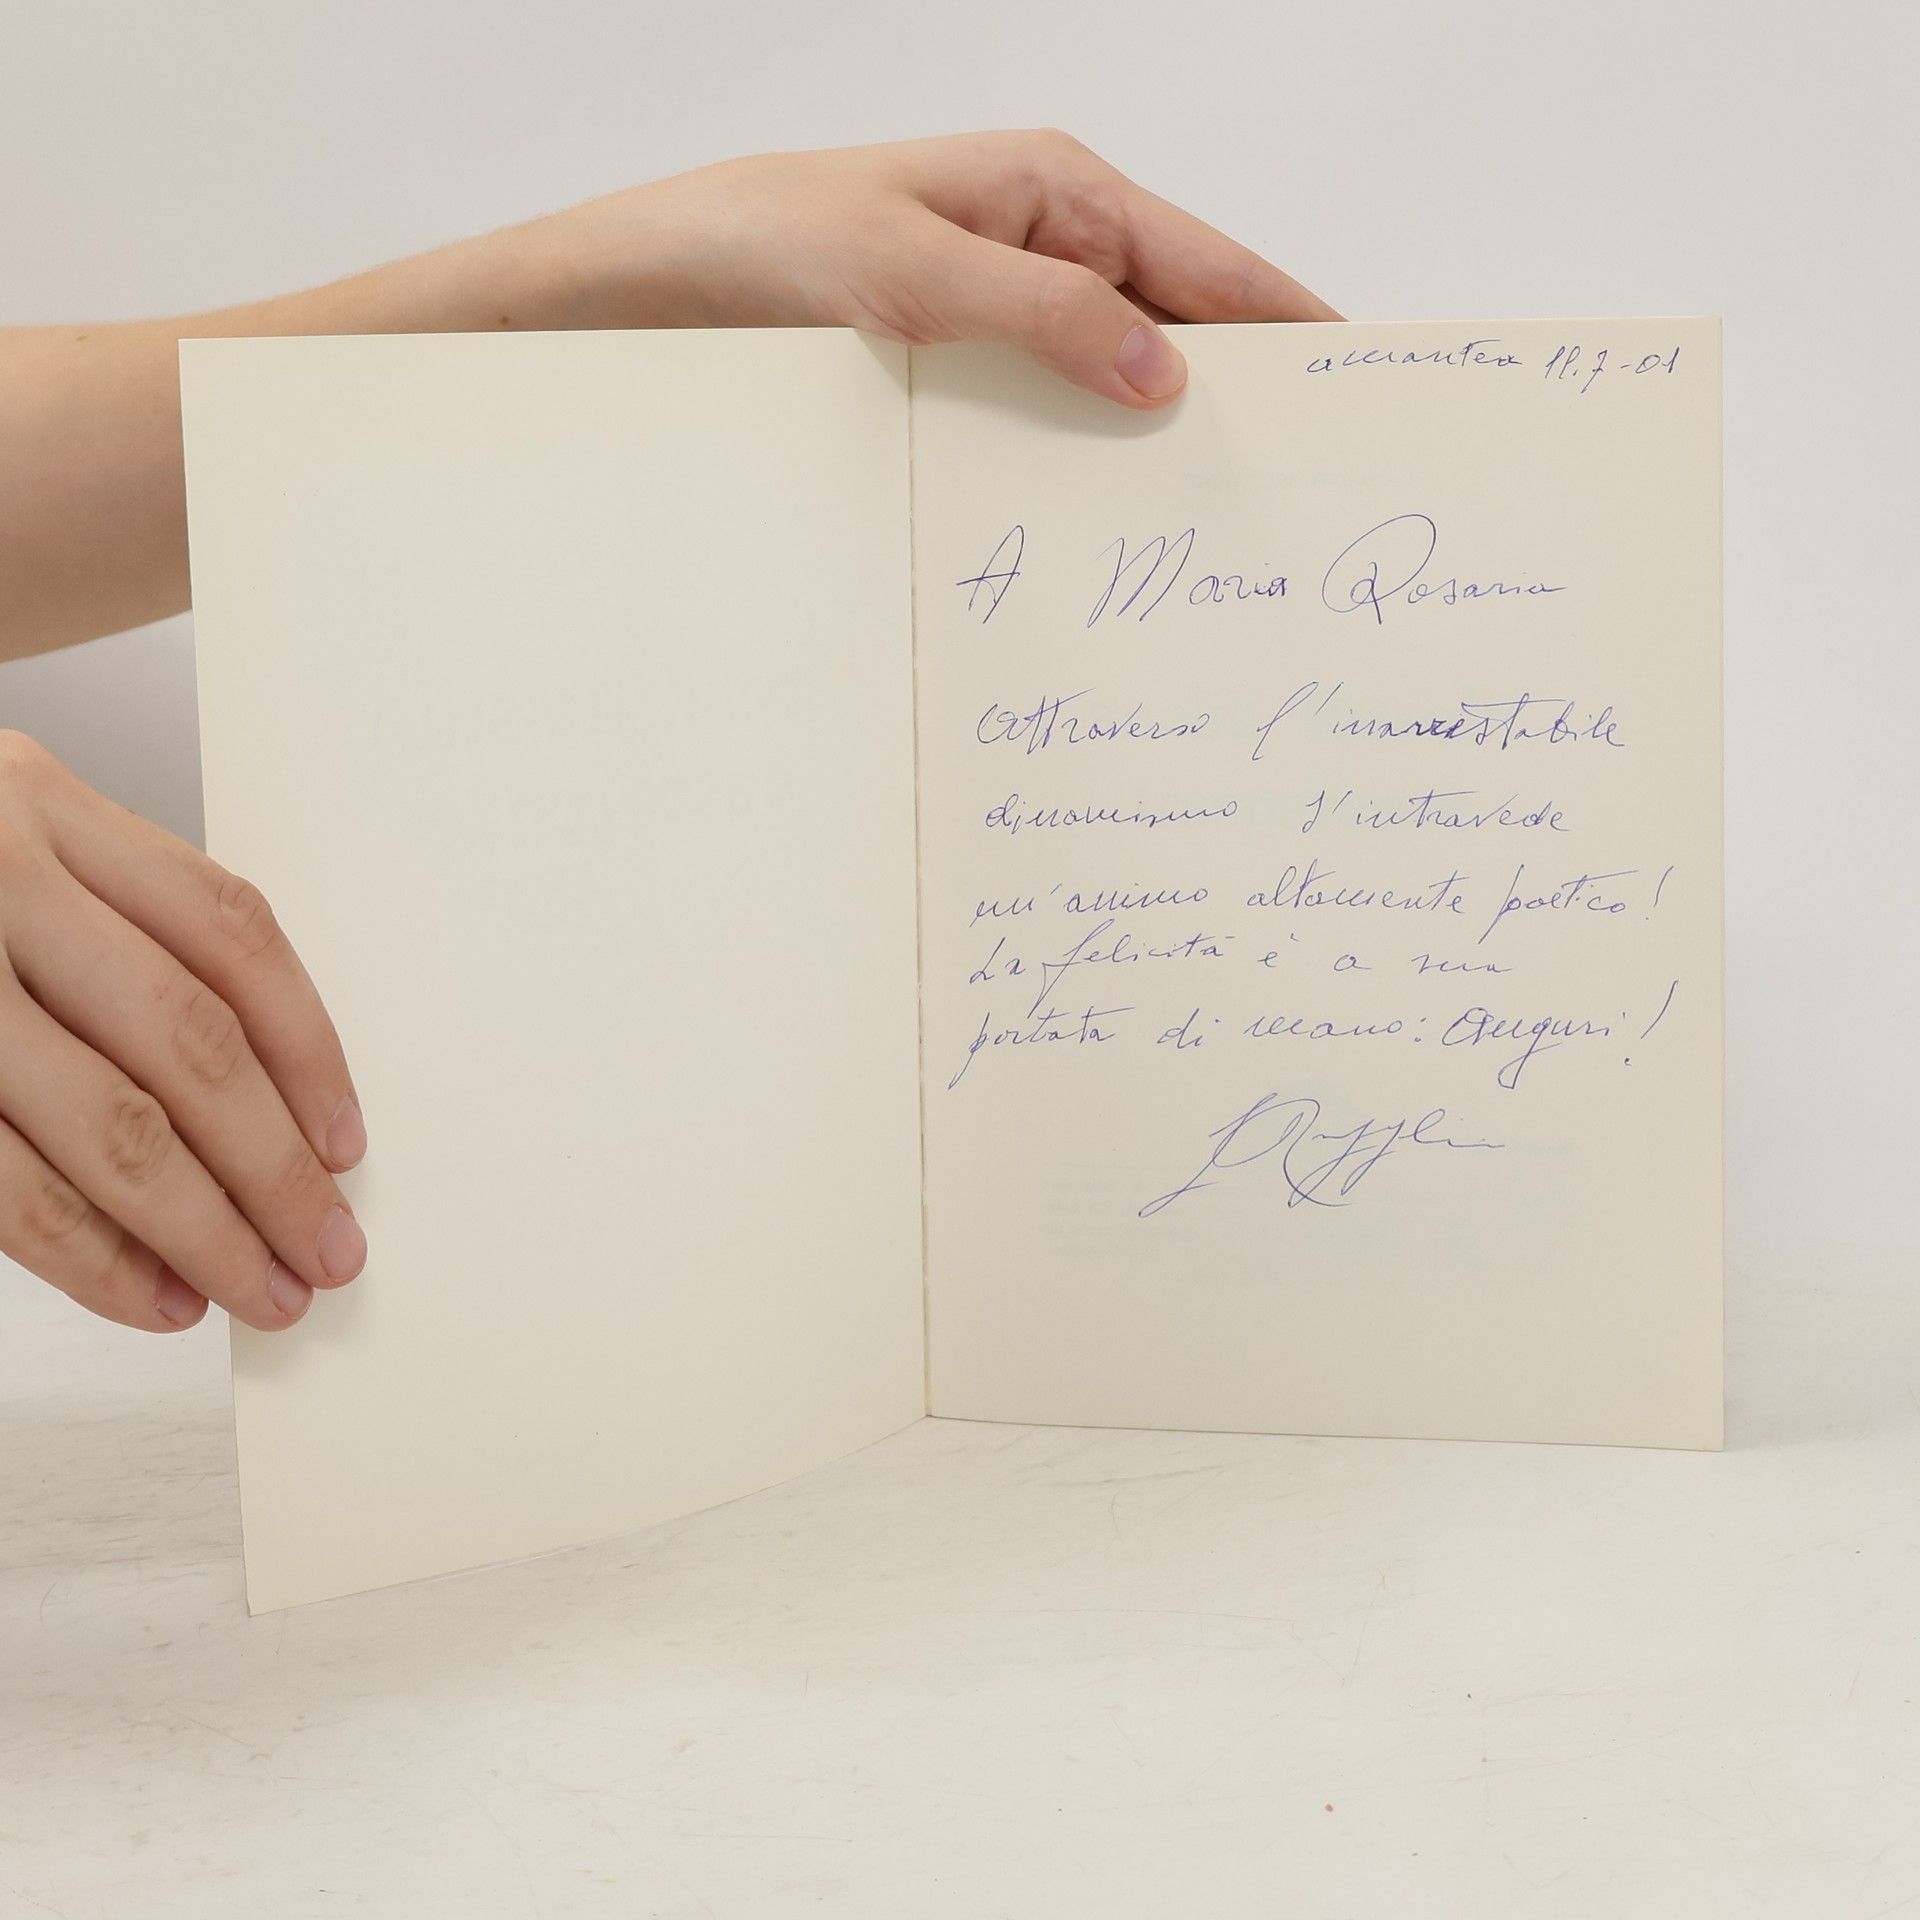 Amantea 11.7-01
A Maria Rosaria
Attraverso l'inarrestabile
dinamismo s'intravede
un'animo altamente poetico!
La felicità è a sua
portata di mano: Auguri!